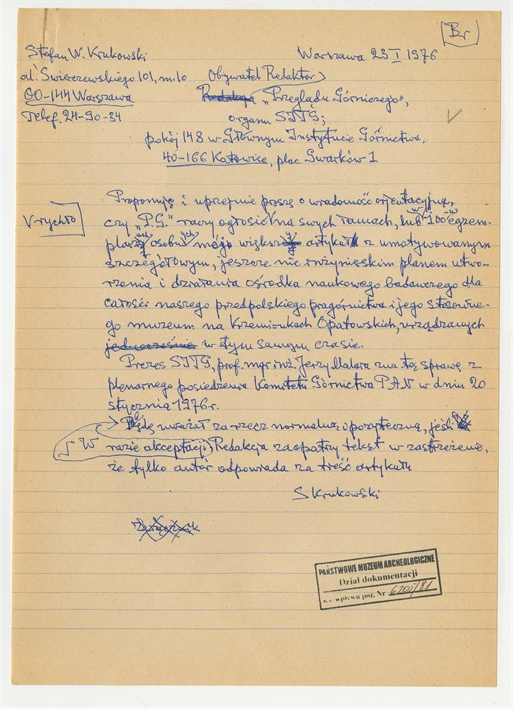 Br
Stefan W. Krukowski
Warszawa 23 I 1976
al. Świerczewskiego 101, m. 10
Obywatel Redaktor
00-144 Warszawa
Redakcja „Przeglądu Górniczego”,
Telef. 24-90-34
organu SITG;
pokój 148 w Głównym Instytucie Górnictwa,
40-166 Katowice, plac Gwarków 1
Proponuję i uprzejmie proszę o wiadomość orjentacyjną,
V rychło
czy „P.G.” raczy ogłosić na swych łamach, lub w 100 egzem-
plarzach osobno mój większy artykuł z umotywowanym
szczegółowym, jeszcze nie inżynierskim planem utwo-
rzenia i działania ośrodka naukowego badawczego dla
całości naszego przedpolskiego pragórnictwa i jego stosowne-
go muzeum na Krzemionkach Opatowskich, urządzanych
jednocześnie w tym samym czasie.
Prezes SITG, prof. mgr inż. Jerzy Malara zna tę sprawę z
plenarnego posiedzenia Komitetu Górnictwa PAN w dniu 20
stycznia 1976 r.
Będę uważał za rzecz normalną i pożyteczną, jeśli
W razie akceptacji Redakcja zaopatrzy tekst w zastrzeżenie,
że tylko autor odpowiada za treść artykułu
S Krukowski
PAŃSTWOWE MUZEUM ARCHEOLOGICZNE
Dział dokumentacji
Nr 6701/81